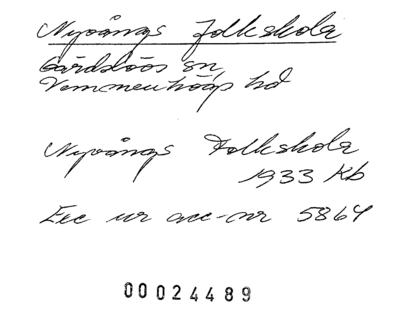 Nyvångs folkskola
Gärdslövs sn,
Vemmenhögs hd
Nyvångs Folkskola
1933 Kb
Exc ur acc-nr 5864
00024489